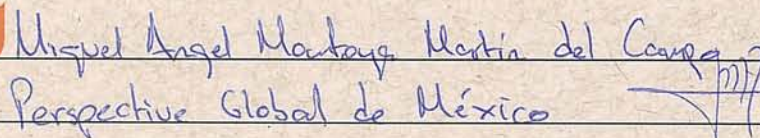 Miguel Angel Montoya Martín del Campo
Perspective Global de México